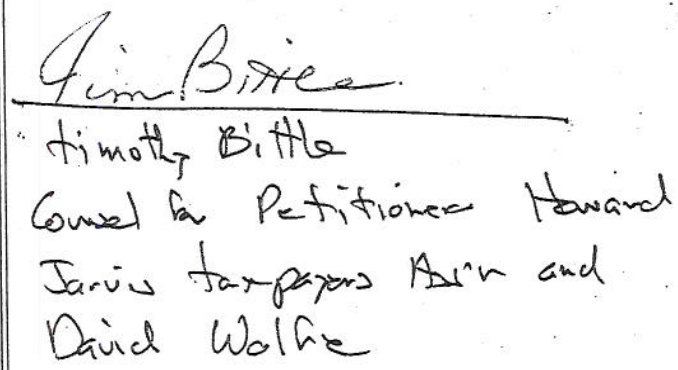 Tim Bittle
Timothy Bittle
Counsel for Petitioners Howard
Jarvis taxpayers Ass'n and
David Wolfe